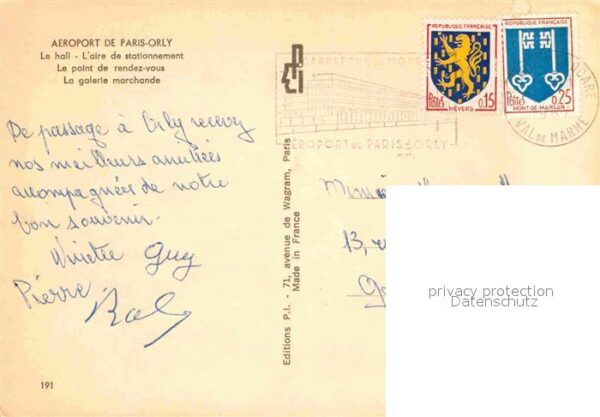 AEROPORT DE PARIS-ORLY
Le hall - L'aire de stationnement
Le point de rendez-vous
La galerie marchande
De passage à Orly recevez
nos meilleurs amitiés
accompagnées de notre
bon souvenir.
Guy
Pierre
191
Editions P.I. - 71, avenue de Wagram, Paris
Made in France
CARREFOUR DU MONDE
AÉROPORT DE PARIS-ORLY
REPUBLIQUE FRANÇAISE
POSTES
0,15
NEVERS
REPUBLIQUE FRANÇAISE
POSTES
0,25
MONT-DE-MARSAN
VAL DE MARNE
13,
privacy protection
Datenschutz